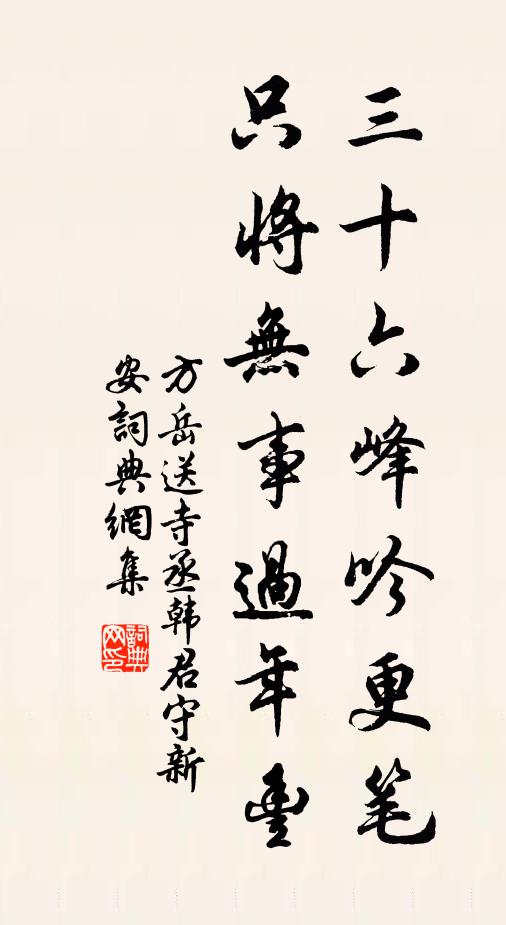 三十六峰吟更笔
只將無事過年豐
方岳送寺丞韩君守新
安詞典網集
詞典
网印